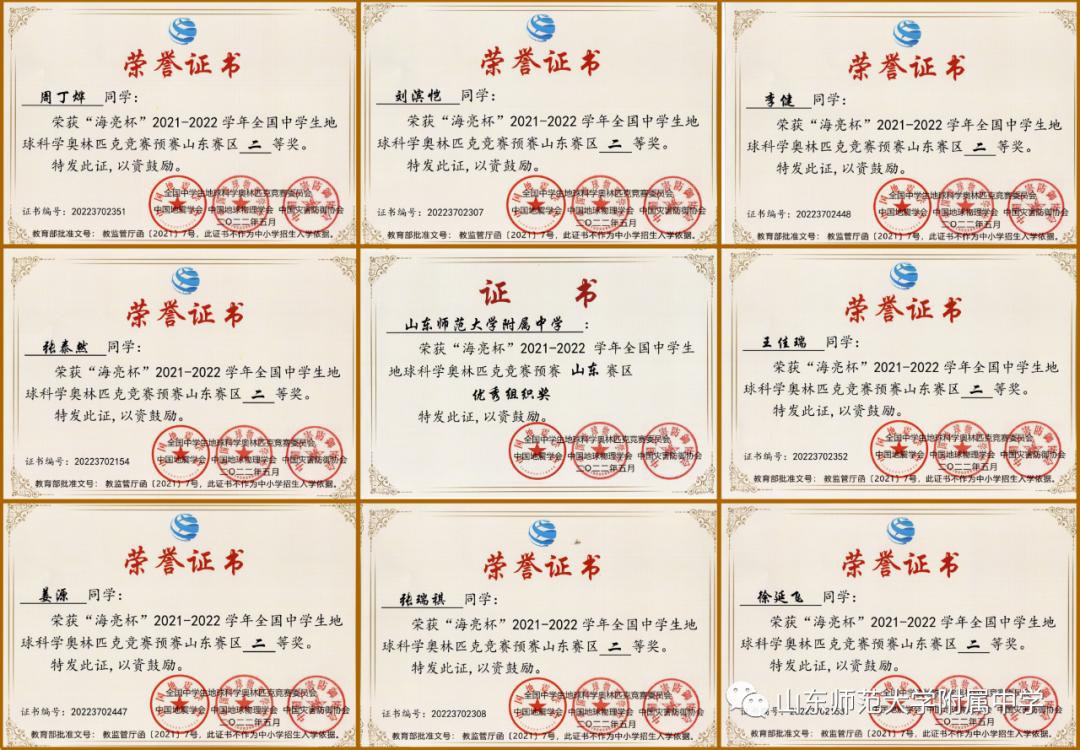 荣誉证书
周丁烨 同学：
荣获“海亮杯”2021-2022 学年全国中学生地
球科学奥林匹克竞赛预赛山东赛区 二 等奖。
特发此证，以资鼓励。
全国中学生地球科学奥林匹克竞赛委员会
中国地震学会 中国地球物理学会 中国灾害防御协会
证书编号：20223702351
二〇二二年五月
教育部批准文号： 教监管厅函〔2021〕7号，此证书不作为中小学招生入学依据。
荣誉证书
刘滨恺 同学：
荣获“海亮杯”2021-2022 学年全国中学生地
球科学奥林匹克竞赛预赛山东赛区 二 等奖。
特发此证，以资鼓励。
全国中学生地球科学奥林匹克竞赛委员会
中国地震学会 中国地球物理学会 中国灾害防御协会
证书编号：20223702307
二〇二二年五月
教育部批准文号： 教监管厅函〔2021〕7号，此证书不作为中小学招生入学依据。
荣誉证书
李健 同学：
荣获“海亮杯”2021-2022 学年全国中学生地
球科学奥林匹克竞赛预赛山东赛区 二 等奖。
特发此证，以资鼓励。
全国中学生地球科学奥林匹克竞赛委员会
中国地震学会 中国地球物理学会 中国灾害防御协会
证书编号：20223702448
二〇二二年五月
教育部批准文号： 教监管厅函〔2021〕7号，此证书不作为中小学招生入学依据。
荣誉证书
张泰然 同学：
荣获“海亮杯”2021-2022 学年全国中学生地
球科学奥林匹克竞赛预赛山东赛区 二 等奖。
特发此证，以资鼓励。
全国中学生地球科学奥林匹克竞赛委员会
中国地震学会 中国地球物理学会 中国灾害防御协会
证书编号：20223702154
二〇二二年五月
教育部批准文号： 教监管厅函〔2021〕7号，此证书不作为中小学招生入学依据。
证 书
山东师范大学附属中学 ：
荣获“海亮杯”2021-2022 学年全国中学生
地球科学奥林匹克竞赛预赛 山东 赛区
优秀组织奖
特发此证，以资鼓励。
全国中学生地球科学奥林匹克竞赛委员会
中国地震学会 中国地球物理学会 中国灾害防御协会
二〇二二年五月
荣誉证书
王佳瑞 同学：
荣获“海亮杯”2021-2022 学年全国中学生地
球科学奥林匹克竞赛预赛山东赛区 二 等奖。
特发此证，以资鼓励。
全国中学生地球科学奥林匹克竞赛委员会
中国地震学会 中国地球物理学会 中国灾害防御协会
证书编号：20223702352
二〇二二年五月
教育部批准文号： 教监管厅函〔2021〕7号，此证书不作为中小学招生入学依据。
荣誉证书
姜源 同学：
荣获“海亮杯”2021-2022 学年全国中学生地
球科学奥林匹克竞赛预赛山东赛区 二 等奖。
特发此证，以资鼓励。
全国中学生地球科学奥林匹克竞赛委员会
中国地震学会 中国地球物理学会 中国灾害防御协会
证书编号：20223702447
二〇二二年五月
教育部批准文号： 教监管厅函〔2021〕7号，此证书不作为中小学招生入学依据。
荣誉证书
张瑞祺 同学：
荣获“海亮杯”2021-2022 学年全国中学生地
球科学奥林匹克竞赛预赛山东赛区 二 等奖。
特发此证，以资鼓励。
全国中学生地球科学奥林匹克竞赛委员会
中国地震学会 中国地球物理学会 中国灾害防御协会
证书编号：20223702308
二〇二二年五月
教育部批准文号： 教监管厅函〔2021〕7号，此证书不作为中小学招生入学依据。
荣誉证书
徐延飞 同学：
荣获“海亮杯”2021-2022 学年全国中学生地
球科学奥林匹克竞赛预赛山东赛区 二 等奖。
特发此证，以资鼓励。
山东师范大学附属中学
教育部批准文号： 教监管厅函〔2021〕7号，此证书不作为中小学招生入学依据。